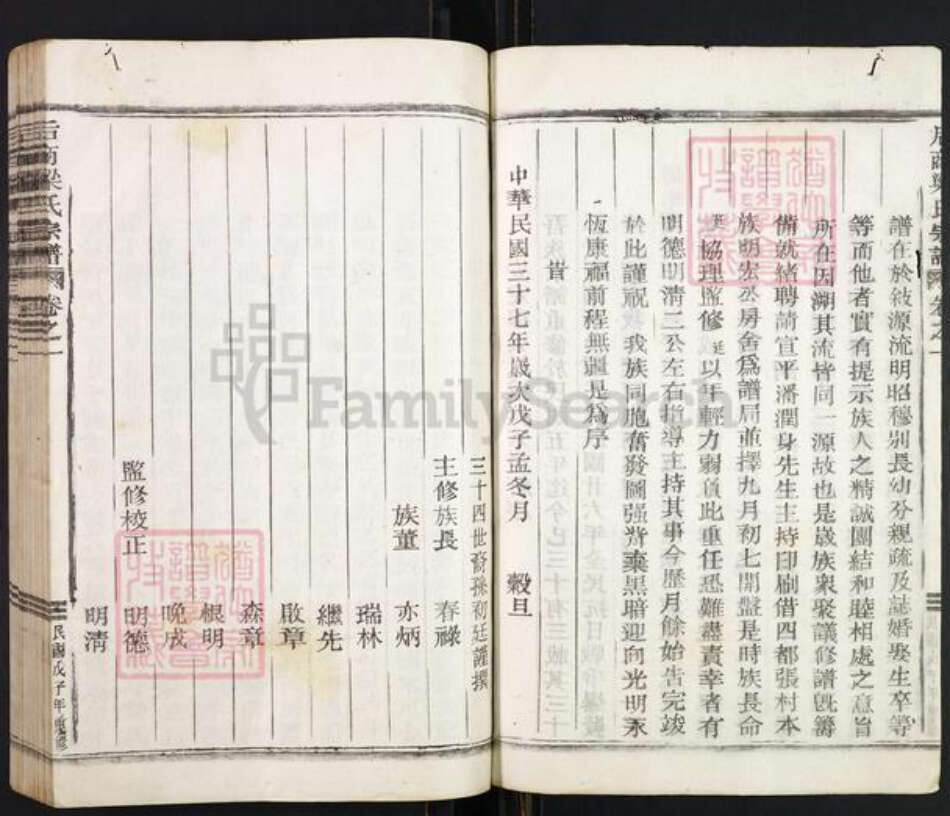 譜在於敍源流明昭穆别長幼分親疏及誌婚娶生卒等
等而他者實有提示族人之精誠團結和睦相處之意旨
所在因溯其流皆同一源故也是歲族衆聚議修譜旣籌
備就緒聘請宣平潘潤身先生主持印刷借四都張村本
族明宏公房舍爲譜局並擇九月初七開盤是時族長命
協理監修廷以年輕力弱負此重任恐難盡責幸者有
明德明清二公左右指導主持其事今歷月餘始告完竣
於此謹祝我族同胞奮發圖强棄黑暗迎向光明永
恆康福前程無疆是為序
中華民國三十七年歲次戊子孟冬月 穀旦
三十四世裔孫初廷謹撰
主修族長 春祿
族董 亦炳
瑞林
繼先
啟章
森章
根明
晚成
監修校正 明德
明清
后商梁氏宗譜 卷之一
民國戊子年重修
FamilySearch